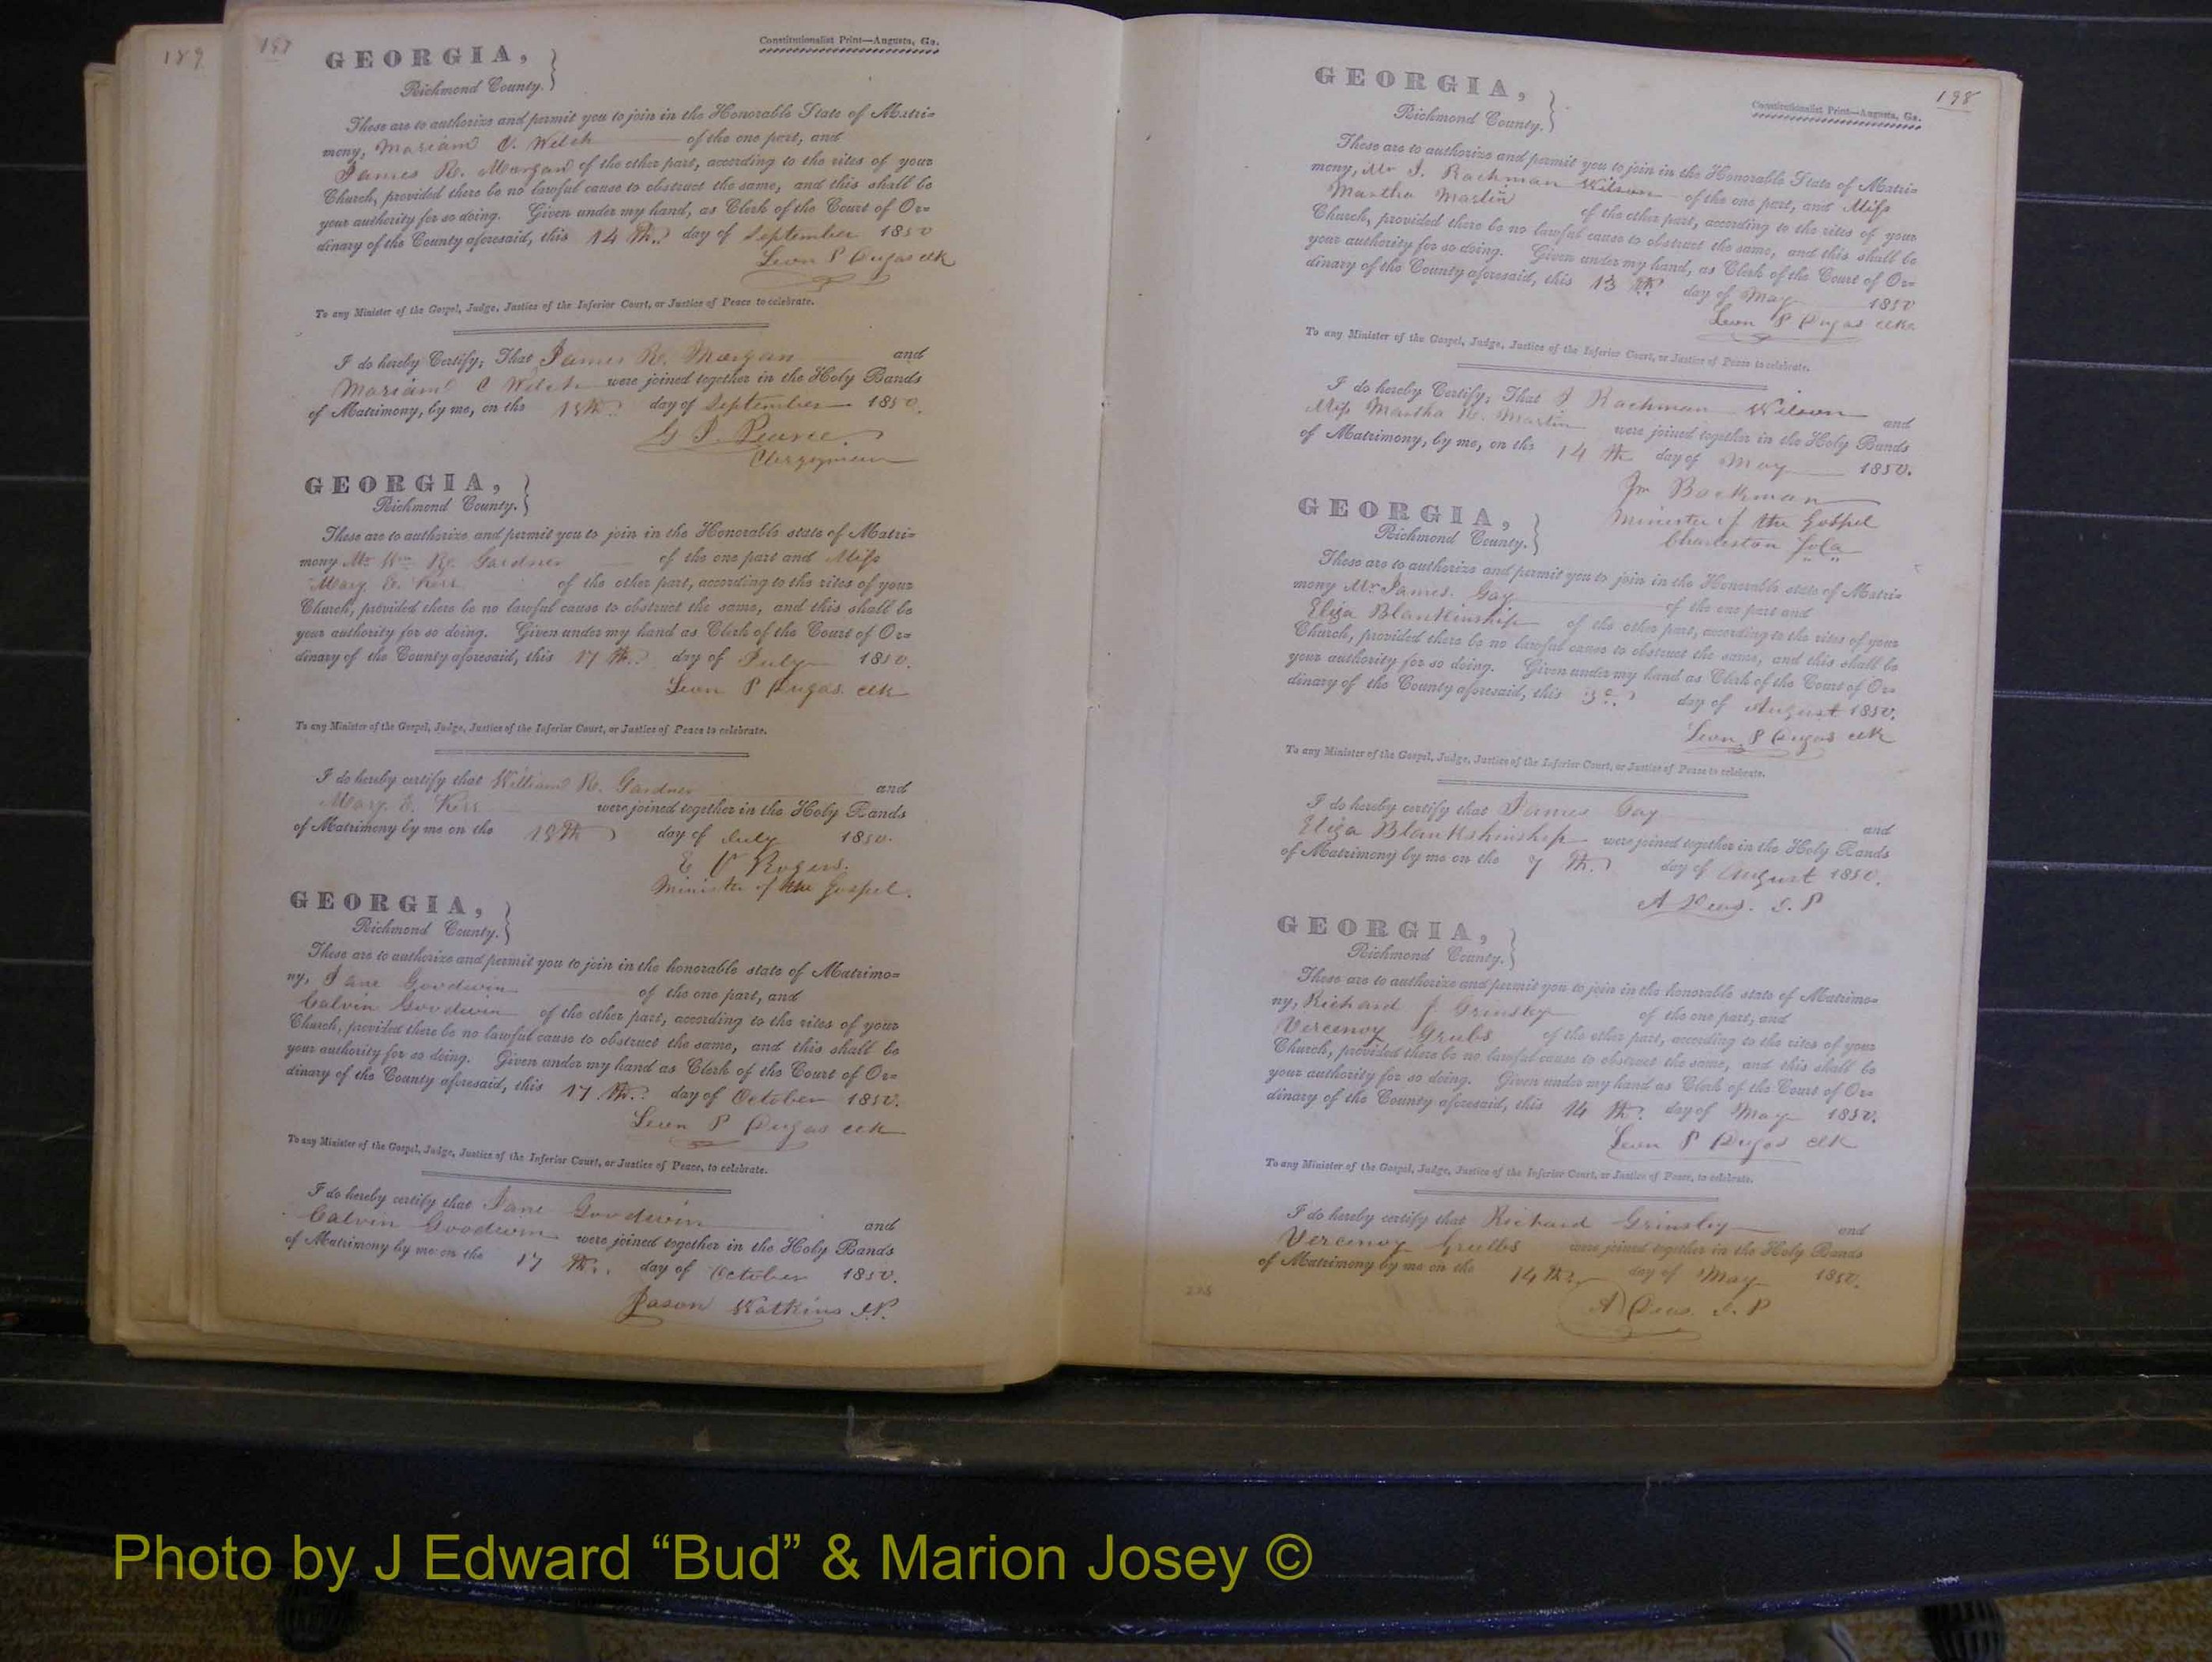 189
197
Constitutionalist Print—Augusta, Ga.
GEORGIA,
Richmond County.
These are to authorize and permit you to join in the Honorable State of Matri=
mony, Mariam C. Welch of the one part, and
James R. Morgan of the other part, according to the rites of your
Church, provided there be no lawful cause to obstruct the same, and this shall be
your authority for so doing. Given under my hand, as Clerk of the Court of Or=
dinary of the County aforesaid, this 14 th. day of September 1850
Leon P Dugas clk
To any Minister of the Gospel, Judge, Justice of the Inferior Court, or Justice of Peace to celebrate.
I do hereby Certify, That James R. Morgan and
Mariam C Welch were joined together in the Holy Bands
of Matrimony, by me, on the 15th day of September 1850.
G F. Pearce.
Clergyman
GEORGIA,
Richmond County.
These are to authorize and permit you to join in the Honorable state of Matri=
mony Mr Wm R. Gardner of the one part and Miss
Mary E. Kerr of the other part, according to the rites of your
Church, provided there be no lawful cause to obstruct the same, and this shall be
your authority for so doing. Given under my hand as Clerk of the Court of Or=
dinary of the County aforesaid, this 17 th. day of July 1850.
Leon P Dugas. clk
To any Minister of the Gospel, Judge, Justice of the Inferior Court, or Justice of Peace to celebrate.
I do hereby certify that William R. Gardner and
Mary E. Kerr were joined together in the Holy Bands
of Matrimony by me on the 18th day of July 1850.
E V Rogers.
Minister of the Gospel.
GEORGIA,
Richmond County.
These are to authorize and permit you to join in the honorable state of Matrimo=
ny, Jane Goodwin of the one part, and
Calvin Goodwin of the other part, according to the rites of your
Church, provided there be no lawful cause to obstruct the same, and this shall be
your authority for so doing. Given under my hand as Clerk of the Court of Or=
dinary of the County aforesaid, this 17 th. day of October 1850.
Leon P Dugas clk
To any Minister of the Gospel, Judge, Justice of the Inferior Court, or Justice of Peace, to celebrate.
I do hereby certify that Jane Goodwin and
Calvin Goodwin were joined together in the Holy Bands
of Matrimony by me on the 17 th. day of October 1850.
Jason Watkins J.P.
198
Constitutionalist Print—Augusta, Ga.
GEORGIA,
Richmond County.
These are to authorize and permit you to join in the Honorable State of Matri=
mony, Mr J. Bachman Wilson of the one part, and Miss
Martha Martin of the other part, according to the rites of your
Church, provided there be no lawful cause to obstruct the same, and this shall be
your authority for so doing. Given under my hand, as Clerk of the Court of Or=
dinary of the County aforesaid, this 13 th day of May 1850
Leon P Dugas clk
To any Minister of the Gospel, Judge, Justice of the Inferior Court, or Justice of Peace to celebrate.
I do hereby Certify, That J Bachman Wilson and
Miss Martha Martin were joined together in the Holy Bands
of Matrimony, by me, on the 14 th day of May 1850.
Jn Bachman
Minister of the Gospel
Charleston
GEORGIA,
Richmond County.
These are to authorize and permit you to join in the Honorable state of Matri=
mony Mr James. Gay of the one part and
Eliza Blankinship of the other part, according to the rites of your
Church, provided there be no lawful cause to obstruct the same, and this shall be
your authority for so doing. Given under my hand as Clerk of the Court of Or=
dinary of the County aforesaid, this day of August 1850.
Leon P Dugas clk
To any Minister of the Gospel, Judge, Justice of the Inferior Court, or Justice of Peace to celebrate.
I do hereby certify that James Gay and
Eliza Blankshinship were joined together in the Holy Bands
of Matrimony by me on the 7 th. day of August 1850.
A Deas. J. P
GEORGIA,
Richmond County.
These are to authorize and permit you to join in the honorable state of Matrimo=
ny, Richard J Grinsley of the one part, and
Vercenoy Grubs of the other part, according to the rites of your
Church, provided there be no lawful cause to obstruct the same, and this shall be
your authority for so doing. Given under my hand as Clerk of the Court of Or=
dinary of the County aforesaid, this 14 th. day of May 1850.
Leon P Dugas clk
To any Minister of the Gospel, Judge, Justice of the Inferior Court, or Justice of Peace to celebrate.
I do hereby certify that Richard Grinsley and
Vercenoy Grubbs were joined together in the Holy Bands
of Matrimony by me on the 14 th day of May 1850.
A Deas. J. P
Photo by J Edward “Bud” & Marion Josey ©